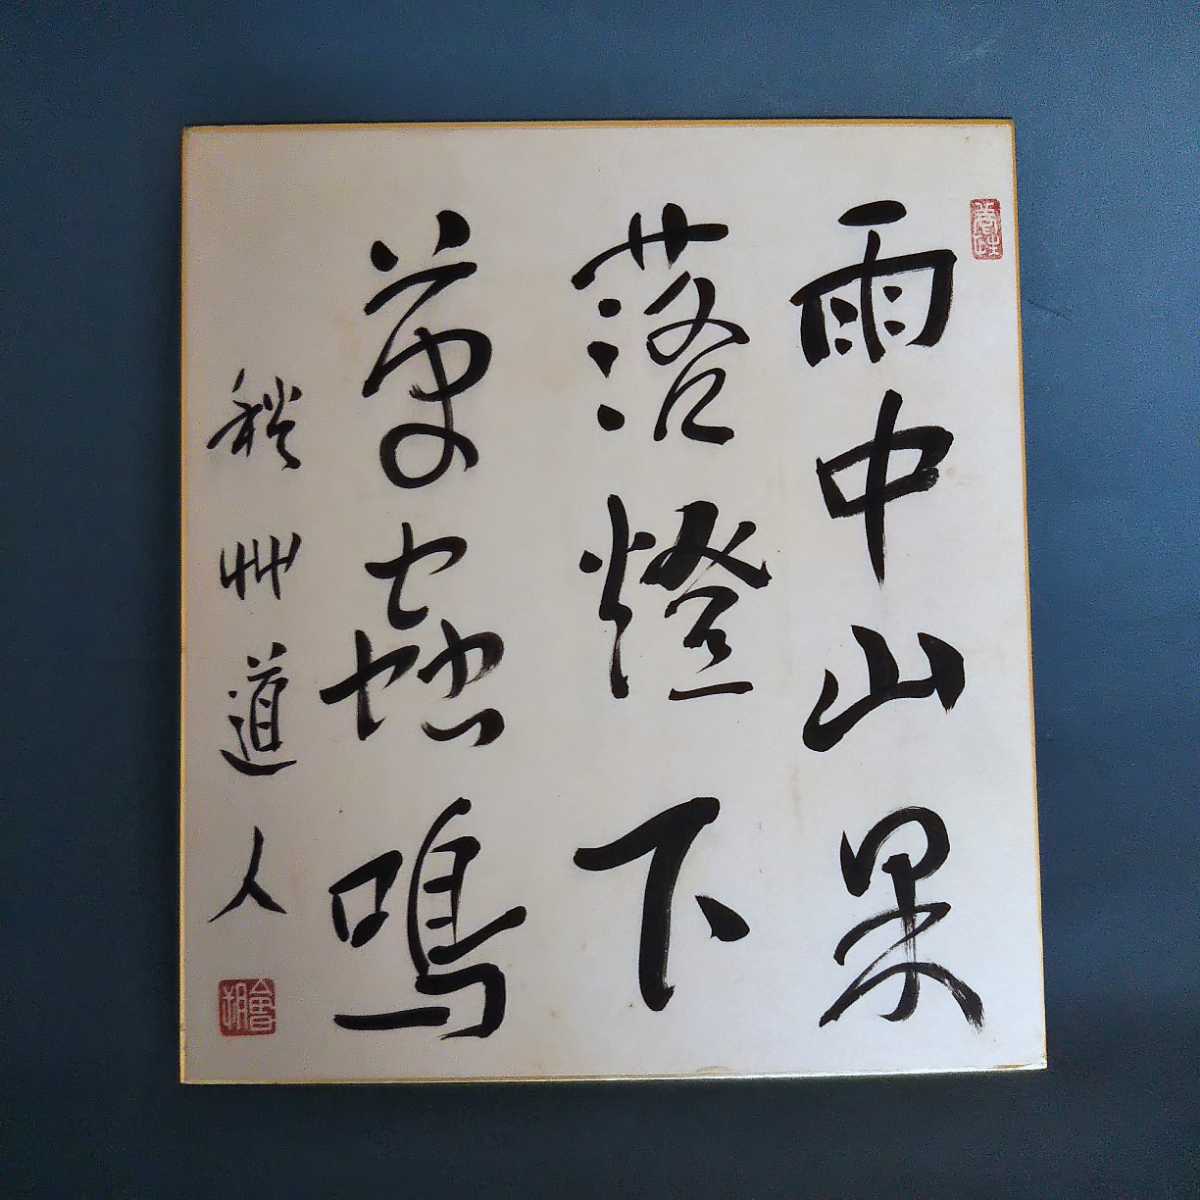 雨中山果
落燈下
草蟲鳴
秋艸道人